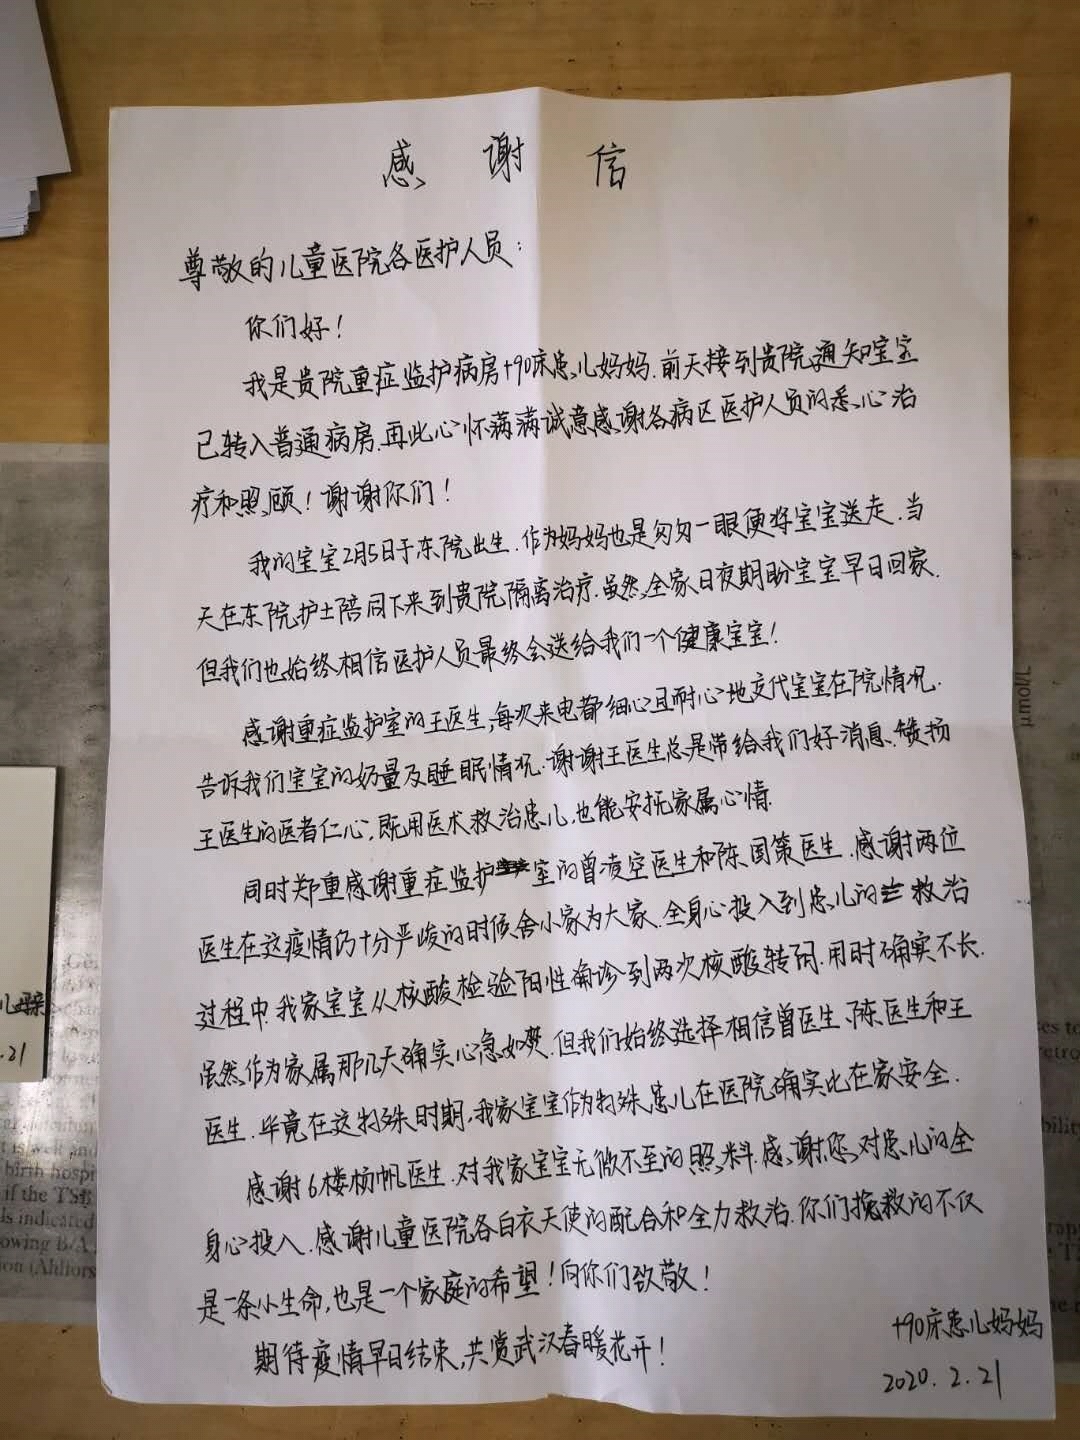 感谢信
尊敬的儿童医院各医护人员：
你们好！
我是贵院重症监护病房+90床患儿妈妈.前天接到贵院通知宝宝
已转入普通病房.再此心怀满满诚意感谢各病区医护人员的悉心治
疗和照顾！谢谢你们！
我的宝宝2月5日于东院出生.作为妈妈也是匆匆一眼便将宝宝送走.当
天在东院护士陪同下来到贵院隔离治疗.虽然全家日夜期盼宝宝早日回家.
但我们也始终相信医护人员最终会送给我们一个健康宝宝！
感谢重症监护室的王医生,每次来电都细心且耐心地交代宝宝在院情况.
告诉我们宝宝的奶量及睡眠情况.谢谢王医生总是带给我们好消息.赞扬
王医生的医者仁心,既用医术救治患儿,也能安抚家属心情.
同时郑重感谢重症监护室的曾凌空医生和陈国策医生.感谢两位
医生在这疫情仍十分严峻的时候舍小家为大家.全身心投入到患儿的救治
过程中.我家宝宝从核酸检验阳性确诊到两次核酸转阴.用时确实不长.
虽然作为家属那几天确实心急如焚.但我们始终选择相信曾医生、陈医生和王
医生.毕竟在这特殊时期,我家宝宝作为特殊患儿在医院确实比在家安全.
感谢6楼杨帆医生.对我家宝宝无微不至的照料.感谢您对患儿的全
身心投入.感谢儿童医院各白衣天使的配合和全力救治.你们挽救的不仅
是一条小生命,也是一个家庭的希望！向你们致敬！
期待疫情早日结束,共赏武汉春暖花开！
+90床患儿妈妈
2020.2.21
μmol/L
儿母亲
.21
birth hospi
if the TSB
ls indicated
owing B/A
ion (Ahlfors